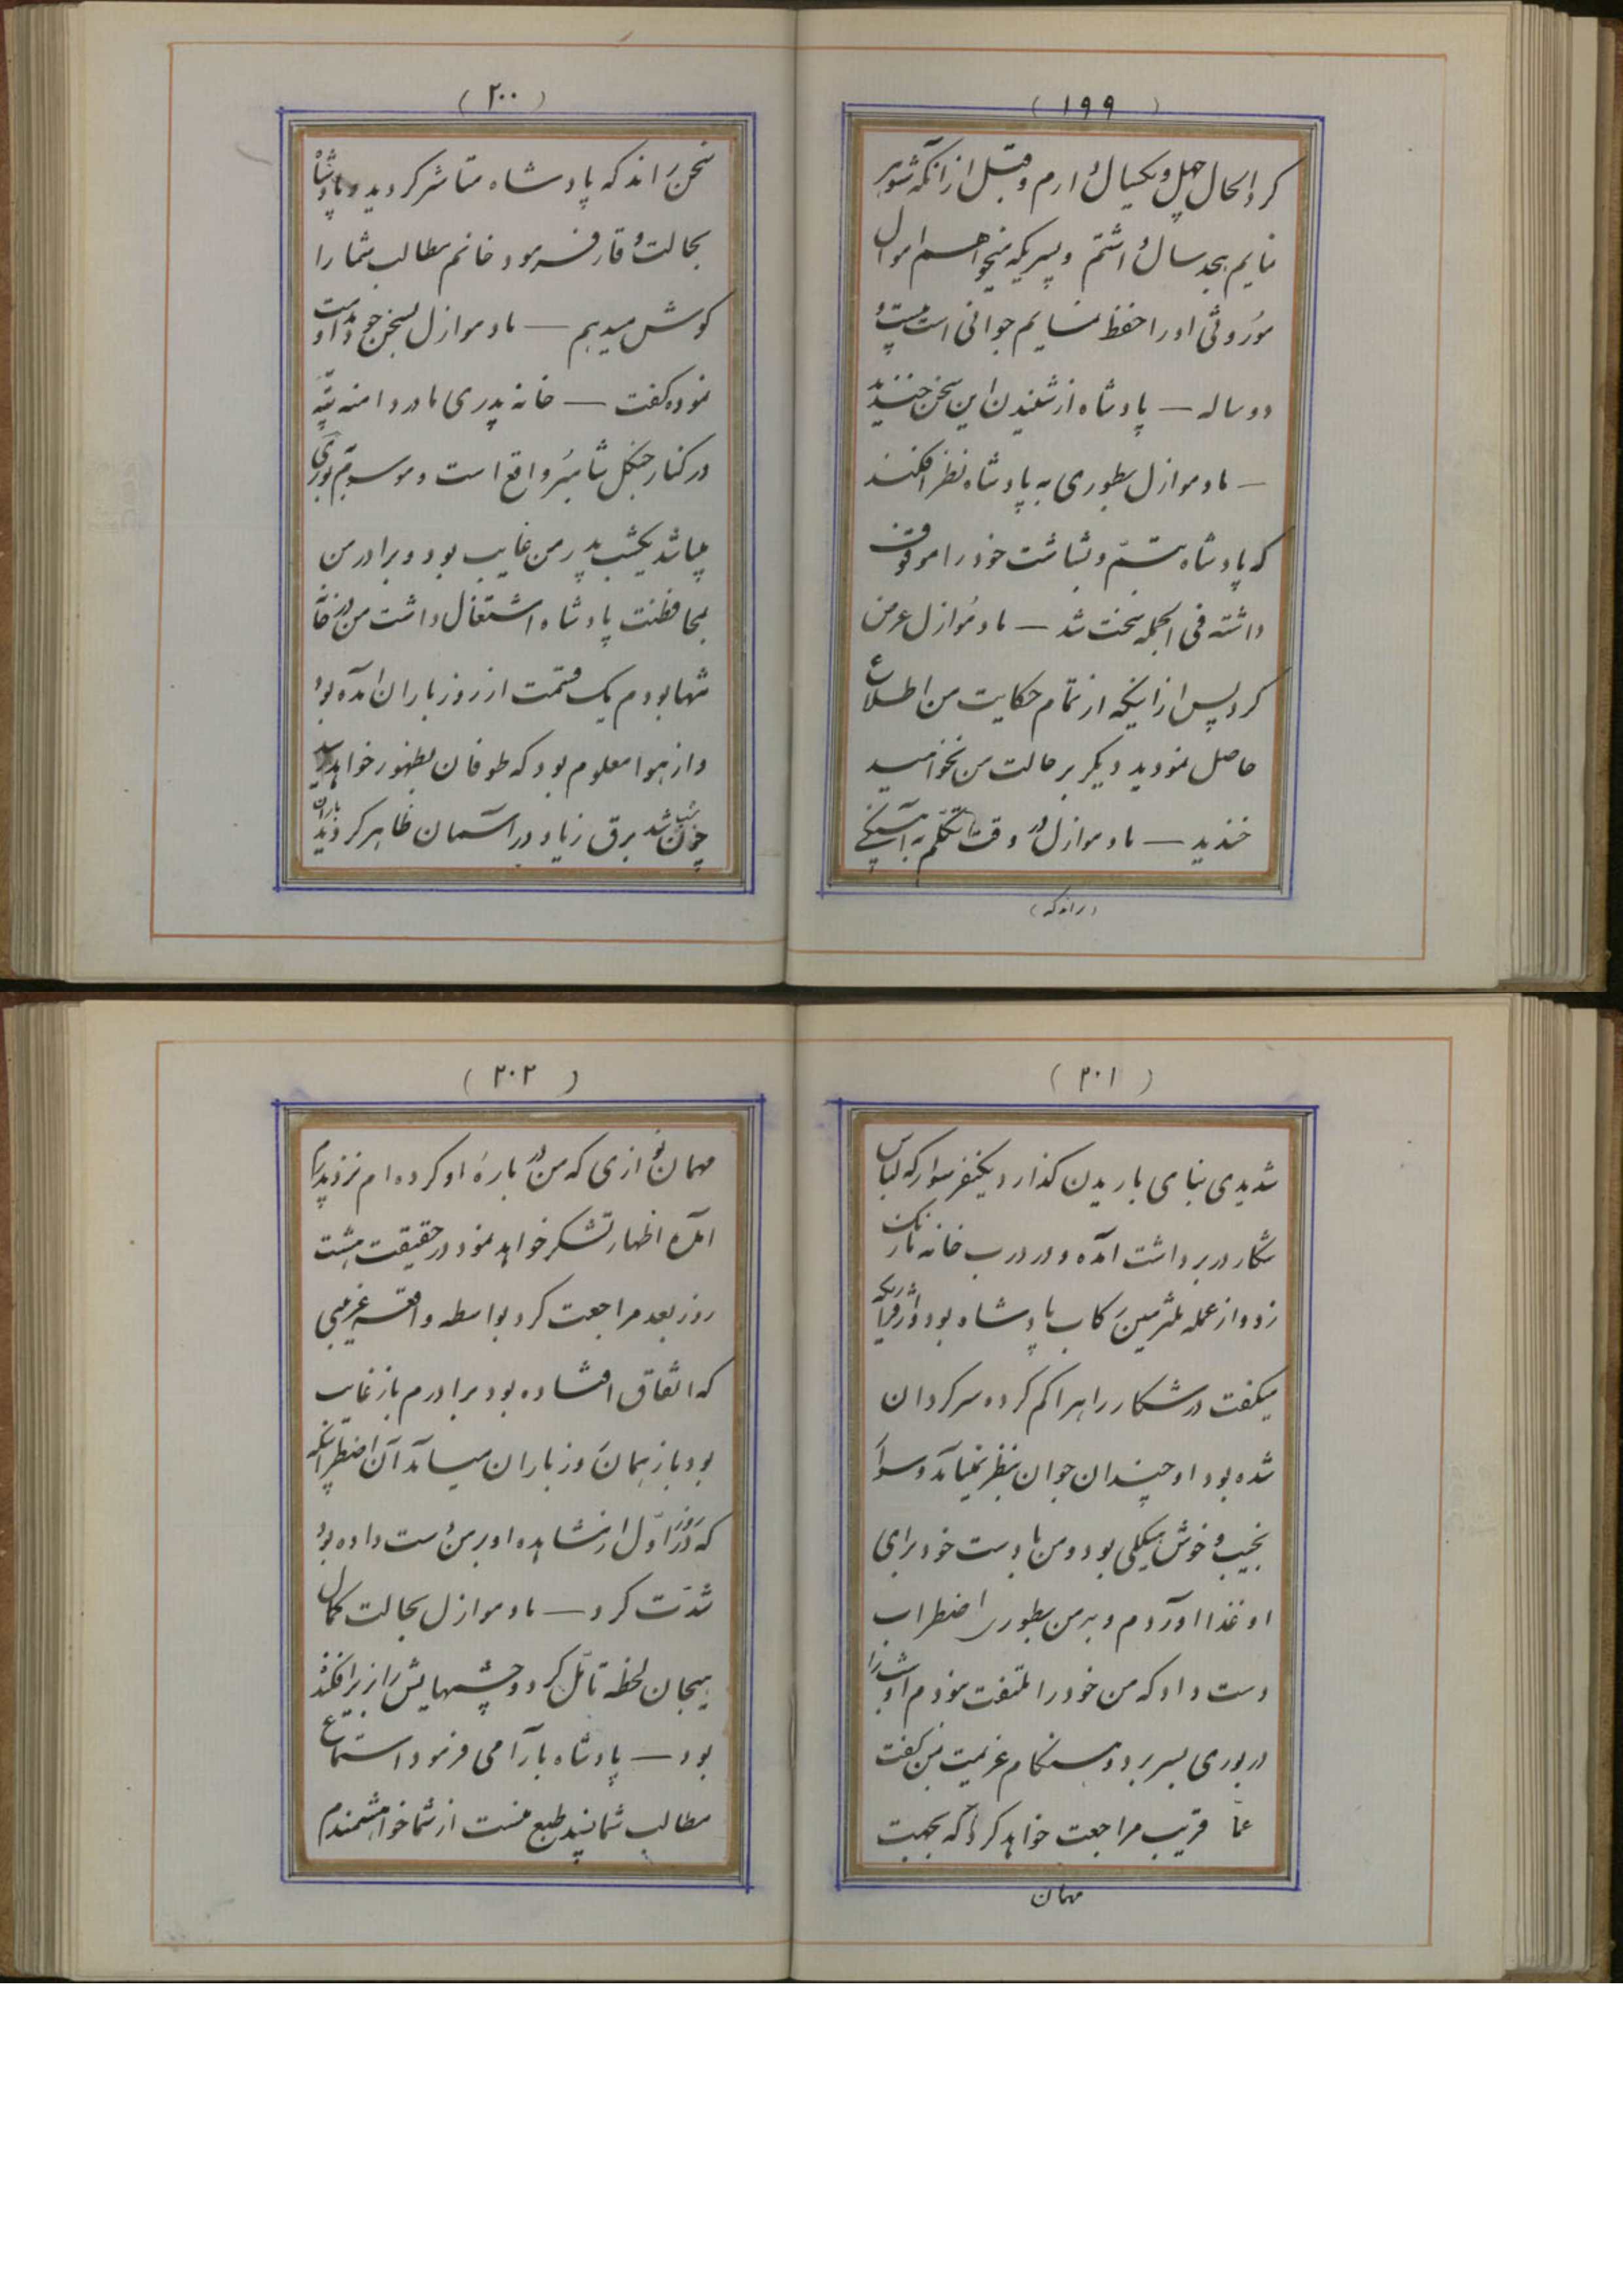 (۱۹۹)
کرد الحال چهل و یکسال دارم و قبل از آنکه شوهر
نمایم هجده سال داشتم و پسریکه میخواهم اموال
موروثی او را حفظ نمایم جوانی است بیست و
دو ساله — پادشاه از شنیدن این سخن خندید
— مادموازل بطوری به پادشاه نظر افکند
که پادشاه تبسم و بشاشت خود را موقوف
داشته فی الجمله سخت شد — مادموازل عرض
کرد پس از اینکه از تمام حکایت من اطلاع
حاصل نمودید دیگر بر حالت من نخواهید
خندید — مادموازل در وقت تکلم به آهستگی
(راند که)
(۲۰۰)
سخن راند که پادشاه متاثر کردید و پادشاه
بحالت وقار فرمود خانم مطالب شما را
کوش میدهم — مادموازل بسخن خود مداومت
نموده کفت — خانه پدری ما در دامنه تپه
در کنار جنکل واقع است و موسوم به بوری
میباشد یکشب پدر من غایب بود و برادر من
بمحافظت پادشاه اشتغال داشت من در خانه
تنها بودم یک قسمت از روز باران آمده بود
و از هوا معلوم بود که طوفان بظهور خواهد رسید
چون شب شد برق زیاد در آسمان ظاهر کردید باران
(۲۰۱)
شدیدی بنای باریدن کذارد یکنفر سوار که لباس
شکار در بر داشت آمده و در درب خانه ما زنک
زد و از عمله ملتزمین رکاب پادشاه بود و از قراریکه
میکفت در شکار راه را کم کرده سرکردان
شده بود او چندان جوان بنظر نمیآمد و سوار
نجیب و خوش هیکلی بود و من با دست خود برای
او غذا آوردم و بر من بطوری اضطراب
دست داد که من خود را ملتفت نمودم او شب را
در بوری بسر برد و هنکام عزیمت بمن کفت
عما قریب مراجعت خواهد کرد که بجهت
مهمان
(۲۰۲)
مهمان نوازی که من در باره او کرده ام نزد پدرم
آمده اظهار تشکر خواهد نمود در حقیقت هشت
روز بعد مراجعت کرد بواسطه واقعه غریبی
که اتفاق افتاده بود برادرم باز غایب
بود باز همان روز باران میآمد آن اضطرابیکه
که در روز اول از مشاهده او بر من دست داده بود
شدت کرد — مادموازل بحالت کمال
هیجان لحظه تامل کرد و چشمهایش را زیر افکنده
بود — پادشاه بآرامی فرمود استماع
مطالب شما پسند طبع منست از شما خواهشمندم